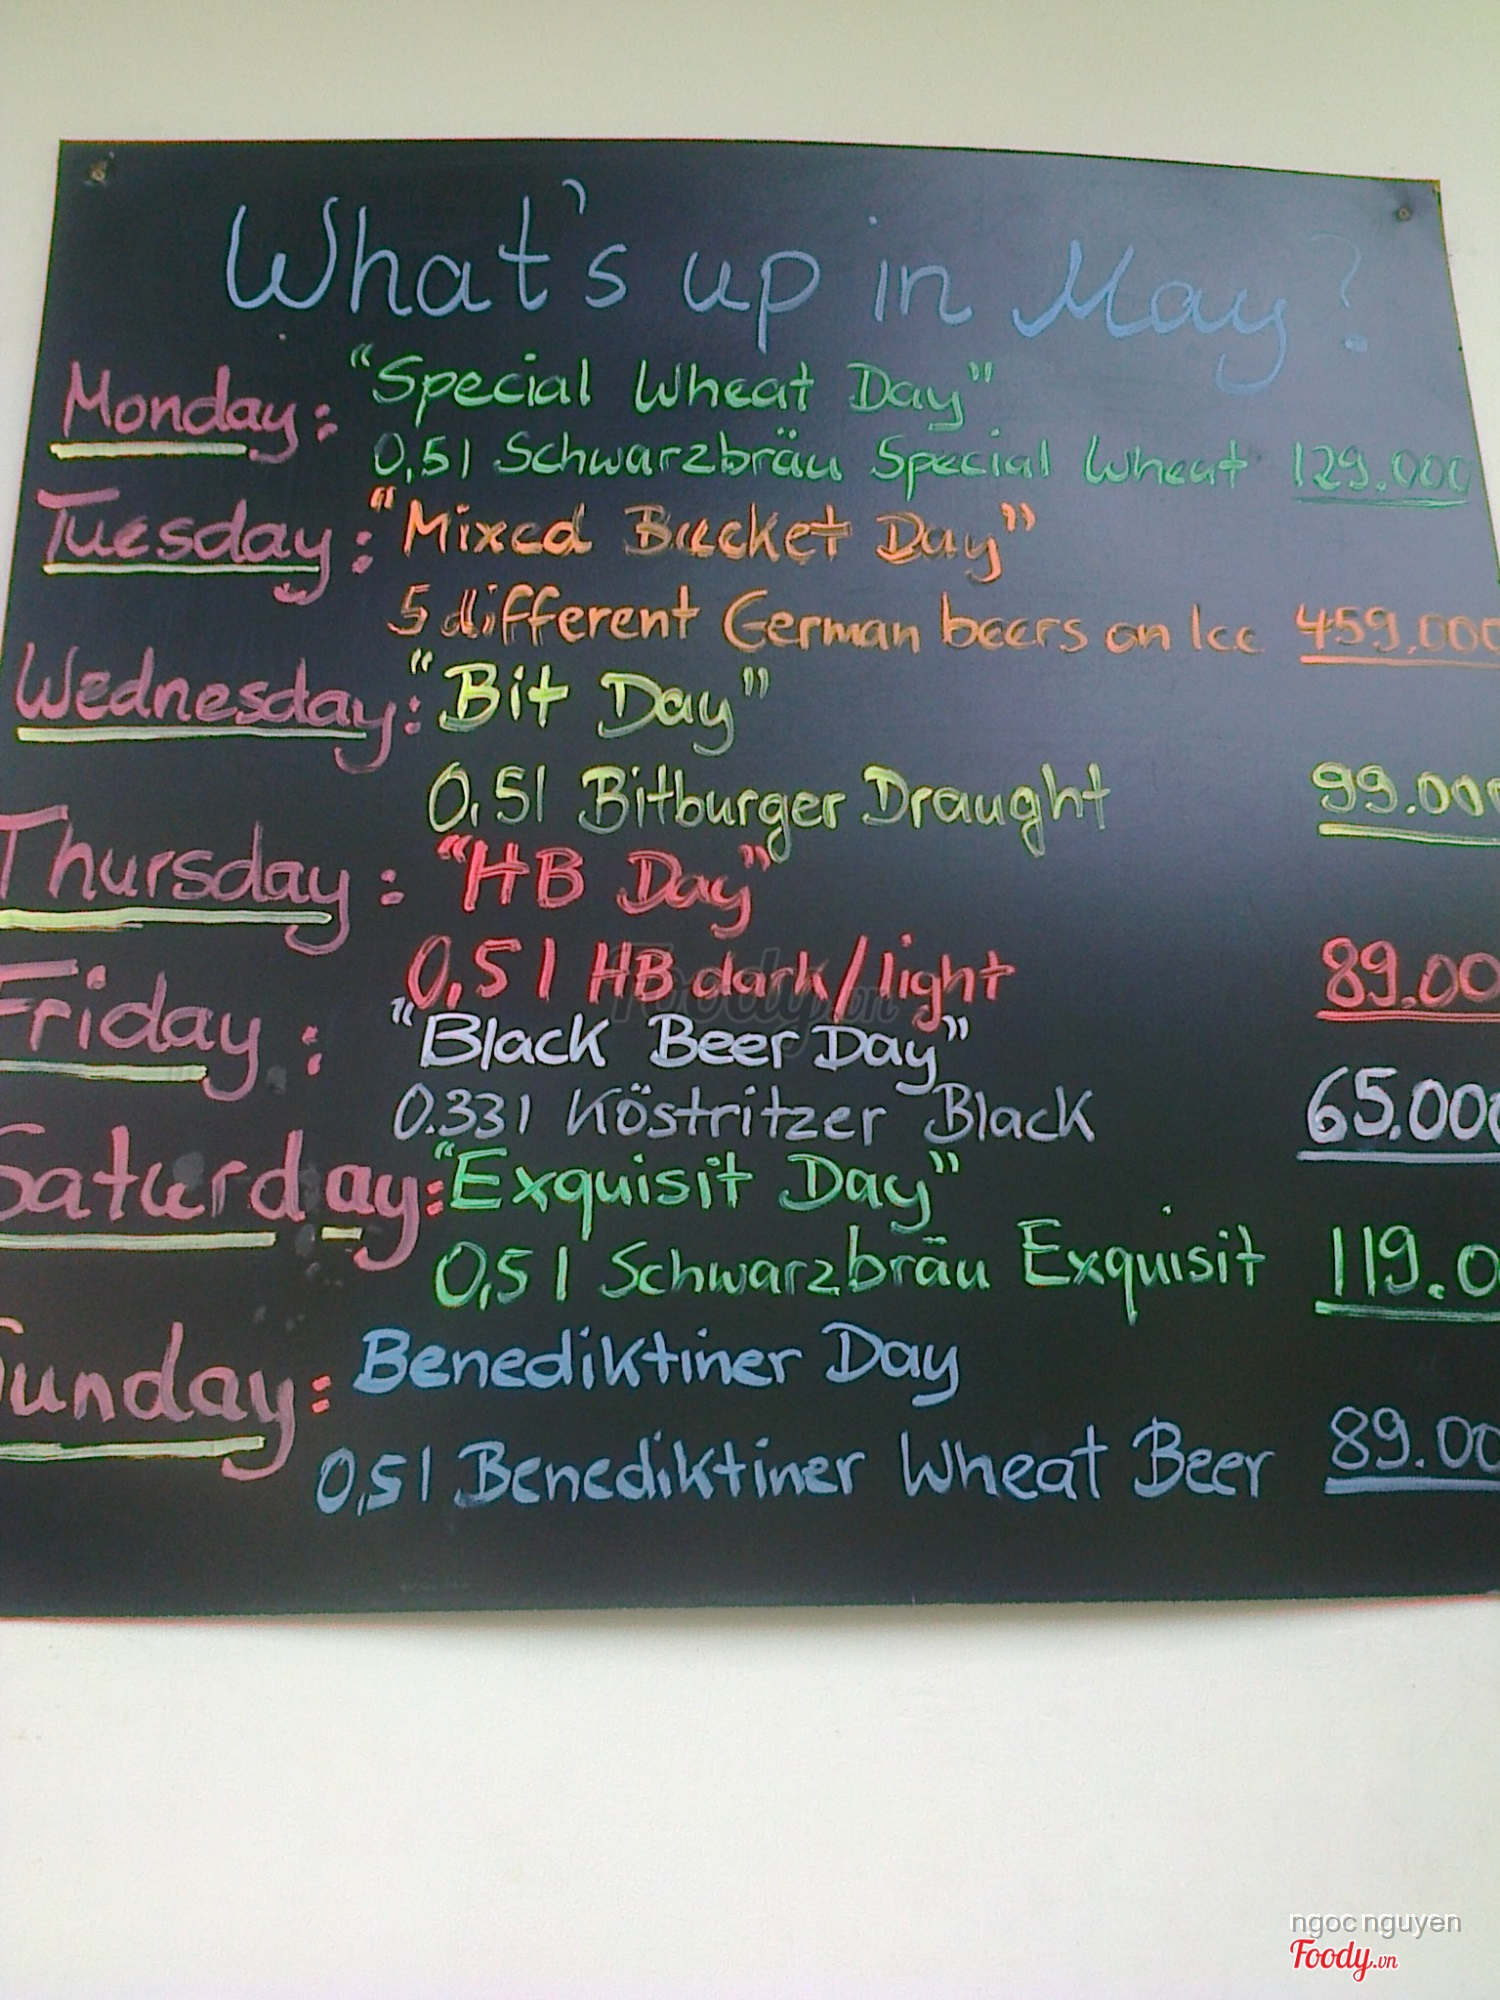 What's up in May?
Monday: "Special Wheat Day"
0,5l Schwarzbräu Special Wheat 129.000
Tuesday: "Mixed Bucket Day"
5 different German beers on Ice 459.000
Wednesday: "Bit Day"
0,5l Bitburger Draught 99.000
Thursday: "HB Day"
0,5l HB dark/light 89.00
Friday: "Black Beer Day"
0.33l Köstritzer Black 65.000
Saturday: "Exquisit Day"
0,5l Schwarzbräu Exquisit 119.0
Sunday: Benediktiner Day
0,5l Benediktiner Wheat Beer 89.00
Foody.vn
ngoc nguyen
Foody.vn